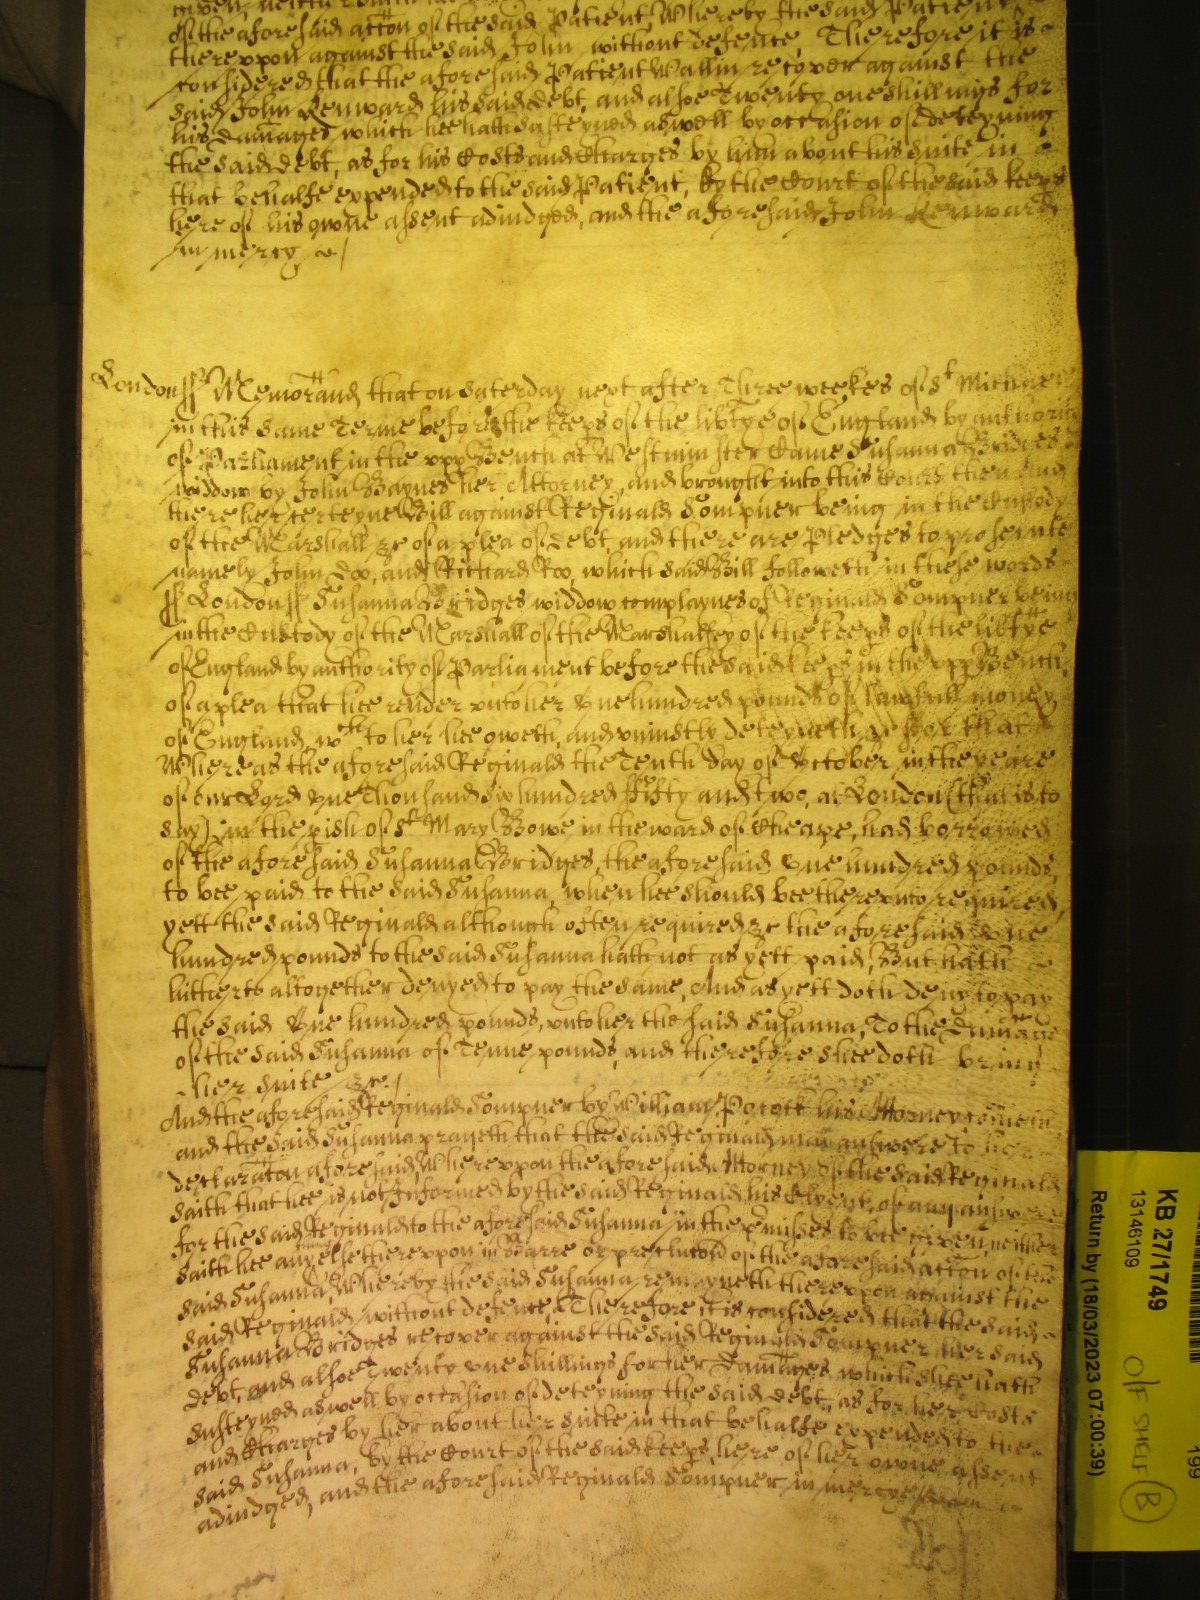 of the aforesaid acc̄on of the said Patient, Whereby the said Patient
therevpon against the said John without defence, Therefore it is
considered that the aforesaid Patient Wallin recover against the
said John Kenward his said debt, and alsoe Twenty one shillings for
his damages which hee hath susteyned aswell by occasion of deteyning
the said debt, as for his Costs and Charges by him about his suite in
that behalfe expended to the said Patient, by the Court of the said keeps
here of his owne assent adiudged, and the aforesaid John Kenward
in mercy &c/
London ss Memorand that on Saterday next after Three weekes of St Michael
in this same Terme before the keeps of the libtye of England by authority
of Parliament in the vpp Bench at Westminster Came Susanna Bridges
widdow by John Baynes her Attorney, and brought into this Court then and
there her certeyne Bill against Reginald Sompner being in the Custody
of the Marshall &c of a plea of debt, and there are Pledges to prosecute
namely John Doo, and Richard Roo, which said Bill followeth in these words
ss London ss Susanna Bridges widdow complaynes of Reginald Sompner being
in the Custody of the Marshall of the Marshalsey of the keeps of the libtye
of England by authority of Parliament before the said keeps in the vpp Bench
of a plea that hee render vnto her One hundred pounds of lawfull money
of England, wch to her hee oweth, and vniustly deteyneth, &c for that
Whereas the aforesaid Reginald the Tenth day of October in the yeare
of our Lord One Thousand Six hundred ffifty and two, at London (that is to
say) in the pish of St Mary Bowe in the ward of Cheape, had borrowed
of the aforesaid Susanna Bridges, the aforesaid One hundred pounds,
to bee paid to the said Susanna, when hee should bee therevnto required,
yett the said Reginald although often required &c the aforesaid One
hundred pounds to the said Susanna hath not as yett paid, But hath
hitherto altogether denyed to pay the same, And as yett doth deny to pay
the said One hundred pounds, vnto her the said Susanna, To the Damage
of the said Susanna of Tenne pounds, and therefore shee doth bring
her suite &c/
And the aforesaid Reginald Sompner by William Pocock his Attorney cometh
and the said Susanna prayeth that the said Reginald may answere to her
declarac̄on aforesaid, Wherevpon the aforesaid Attorney of the said Reginald
saith that hee is not Informed by the said Reginald his Clyent, of any answere
for the said Reginald to the aforesaid Susanna in the p̄misses to bee given, neither
saith hee any thinge else therevpon in Barre or preclusion of the aforesaid acc̄on of the
said Susanna, Whereby the said Susanna remayneth therevpon against the
said Reginald without defence, Therefore it is considered that the said
Susanna Bridges recover against the said Reginald Sompner her said
debt, and alsoe Twenty one shillings for her Damages which shee hath
susteyned aswell by occasion of deteyning the said debt, as for her Costs
and Charges by her about her suite in that behalfe expended to the
said Susanna, by the Court of the said keeps here of her owne assent
adiudged, and the aforesaid Reginald Sompner in mercye
KB 27/1749
13146109
Return by (18/03/2023 07:00:39)
O/F SHELF B
199